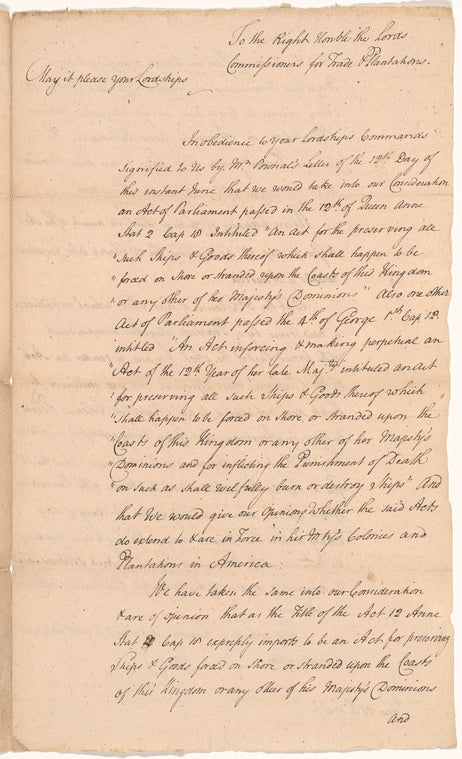 To the Right Honble the Lords
Commissioners for Trade & Plantations.
May it please your Lordships
In obedience to your Lordships Commands
signified to Us by Mr. Pownal's Letter of the 12th Day of
this instant June that we would take into our Consideration
an Act of Parliament passed in the 12th of Queen Anne
Stat 2 Cap 18 Intituled "An Act for the preserving all
"such Ships & Goods thereof which shall happen to be
"forced on Shore or stranded upon the Coasts of this Kingdom
"or any other of his Majesty's Dominions" Also one other
Act of Parliament passed the 4th of George 1st Cap 12
intitled "An Act inforcing & making perpetual an
"Act of the 12th Year of her late Majty intituled an Act
"for preserving all such Ships & Goods thereof which
"shall happen to be forced on Shore or stranded upon the
"Coasts of this Kingdom or any other of her Majesty's
"Dominions and for inflicting the Punishment of Death
"on such as shall wilfully burn or destroy Ships" And
that We would give our Opinion whether the said Acts
do extend to & are in Force in his Mty's Colonies and
Plantations in America:
We have taken the same into our Consideration
& are of opinion that as the Title of the Act 12 Anne
Stat 2 Cap 18 expressly imports to be an Act for preserving
Ships & Goods forced on Shore or stranded upon the Coasts
of this Kingdom or any other of his Majesty's Dominions
and